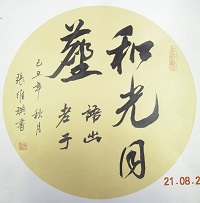 和光同
塵
語出
老子
己丑年 秋月
張維 書
21.08.2